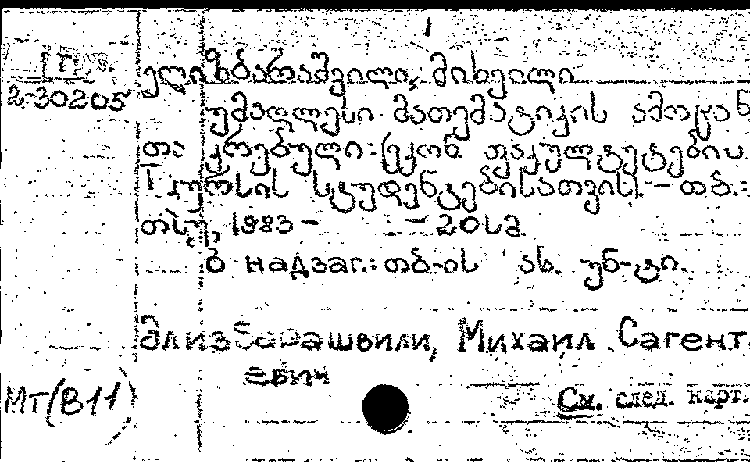 1
1 П
2-30205
ელიზბარაშვილი, მიხეილი
უმაღლესი მათემატიკის ამოცან
თა კრებული: (ეკონ. ფაკულტეტების
I კურსის სტუდენტებისათვის). – თბ.:
თსუ, 1983 –
– 20 სმ.
В надзаг.: თბ-ის სახ. უნ-ტი.
Элизбарашвили, Михаил Сагент.
евич
МТ(В11)
См. след. карт.